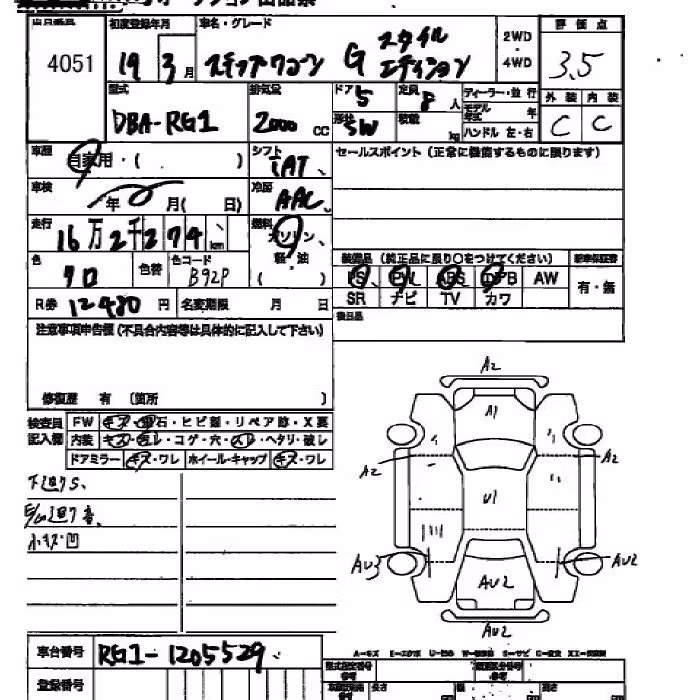 4051
初度登録年月
車名・グレード
19 3月
ステップワゴン G スタイルエディション
2WD
・
4WD
評価点
3.5
型式
DBA-RG1
排気量
2000 cc
ドア 5
定員 8 人
形状 SW
積載 kg
ディーラー・並行
モデル年式 年
ハンドル 左・右
外装 内装
C C
車歴
自家用・( )
シフト
車検
年 月( 日)
冷房
AAC
走行
16万2千274 km
燃料
ガソリン
軽・油
( )
色
クロ
色替
色コード
B92P
R券 12480 円
名変期限 月 日
セールスポイント (正常に機能するものに限ります)
装備品 (純正品に限り○をつけてください)
PS PW ABS AW
SR ナビ TV カワ
新車保証書
有・無
後日品
注意事項申告欄(不具合内容等は具体的に記入して下さい)
修復歴 有 〔箇所 〕
検査員
記入欄
FW キズ・飛石・ヒビ割・リペア跡・X要
内装 キズ・汚レ・コゲ・穴・スレ・ヘタリ・破レ
ドアミラー キズ・ワレ ホイール・キャップ キズ・ワレ
下廻りS、
小キズ凹
A2
A1
A2
A2
U1
AU3
AU2
AU2
AU2
車台番号 RG1-1205529
登録番号
長さ 幅 高さ